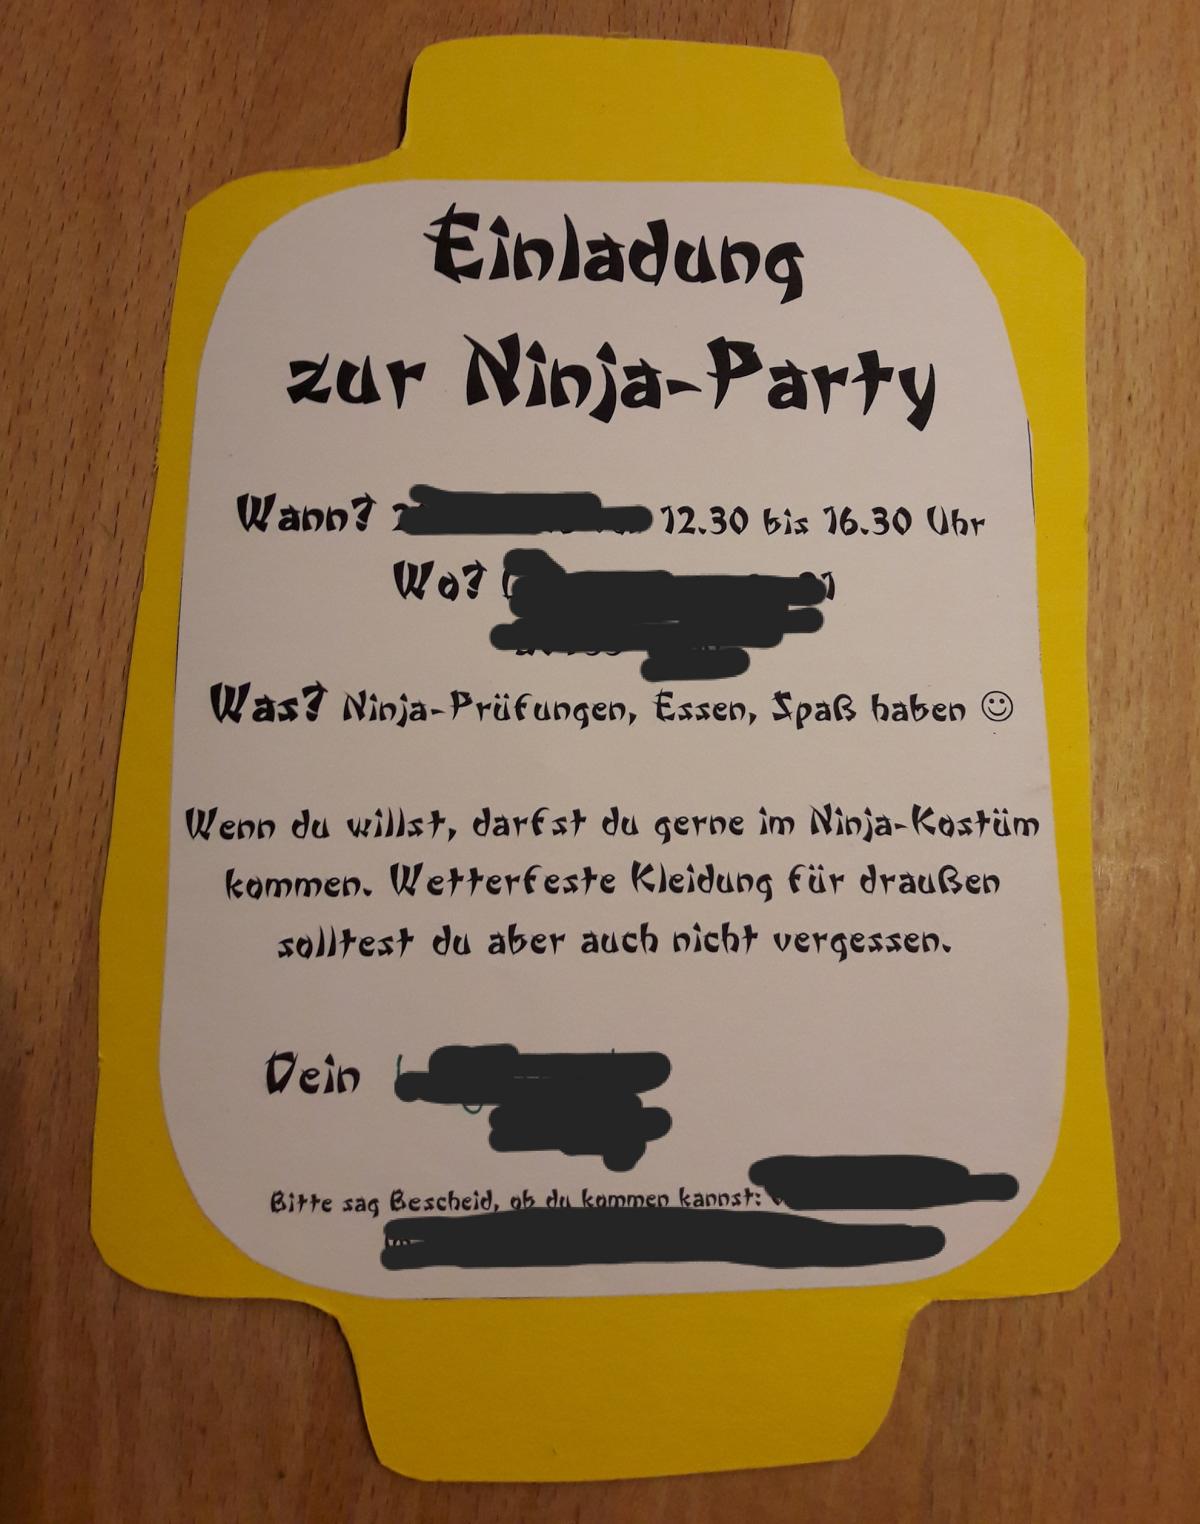 Einladung
zur Ninja-Party
Wann? 12.30 bis 16.30 Uhr
Wo?
Was? Ninja-Prüfungen, Essen, Spaß haben ☺
Wenn du willst, darfst du gerne im Ninja-Kostüm
kommen. Wetterfeste Kleidung für draußen
solltest du aber auch nicht vergessen.
Dein
Bitte sag Bescheid, ob du kommen kannst: